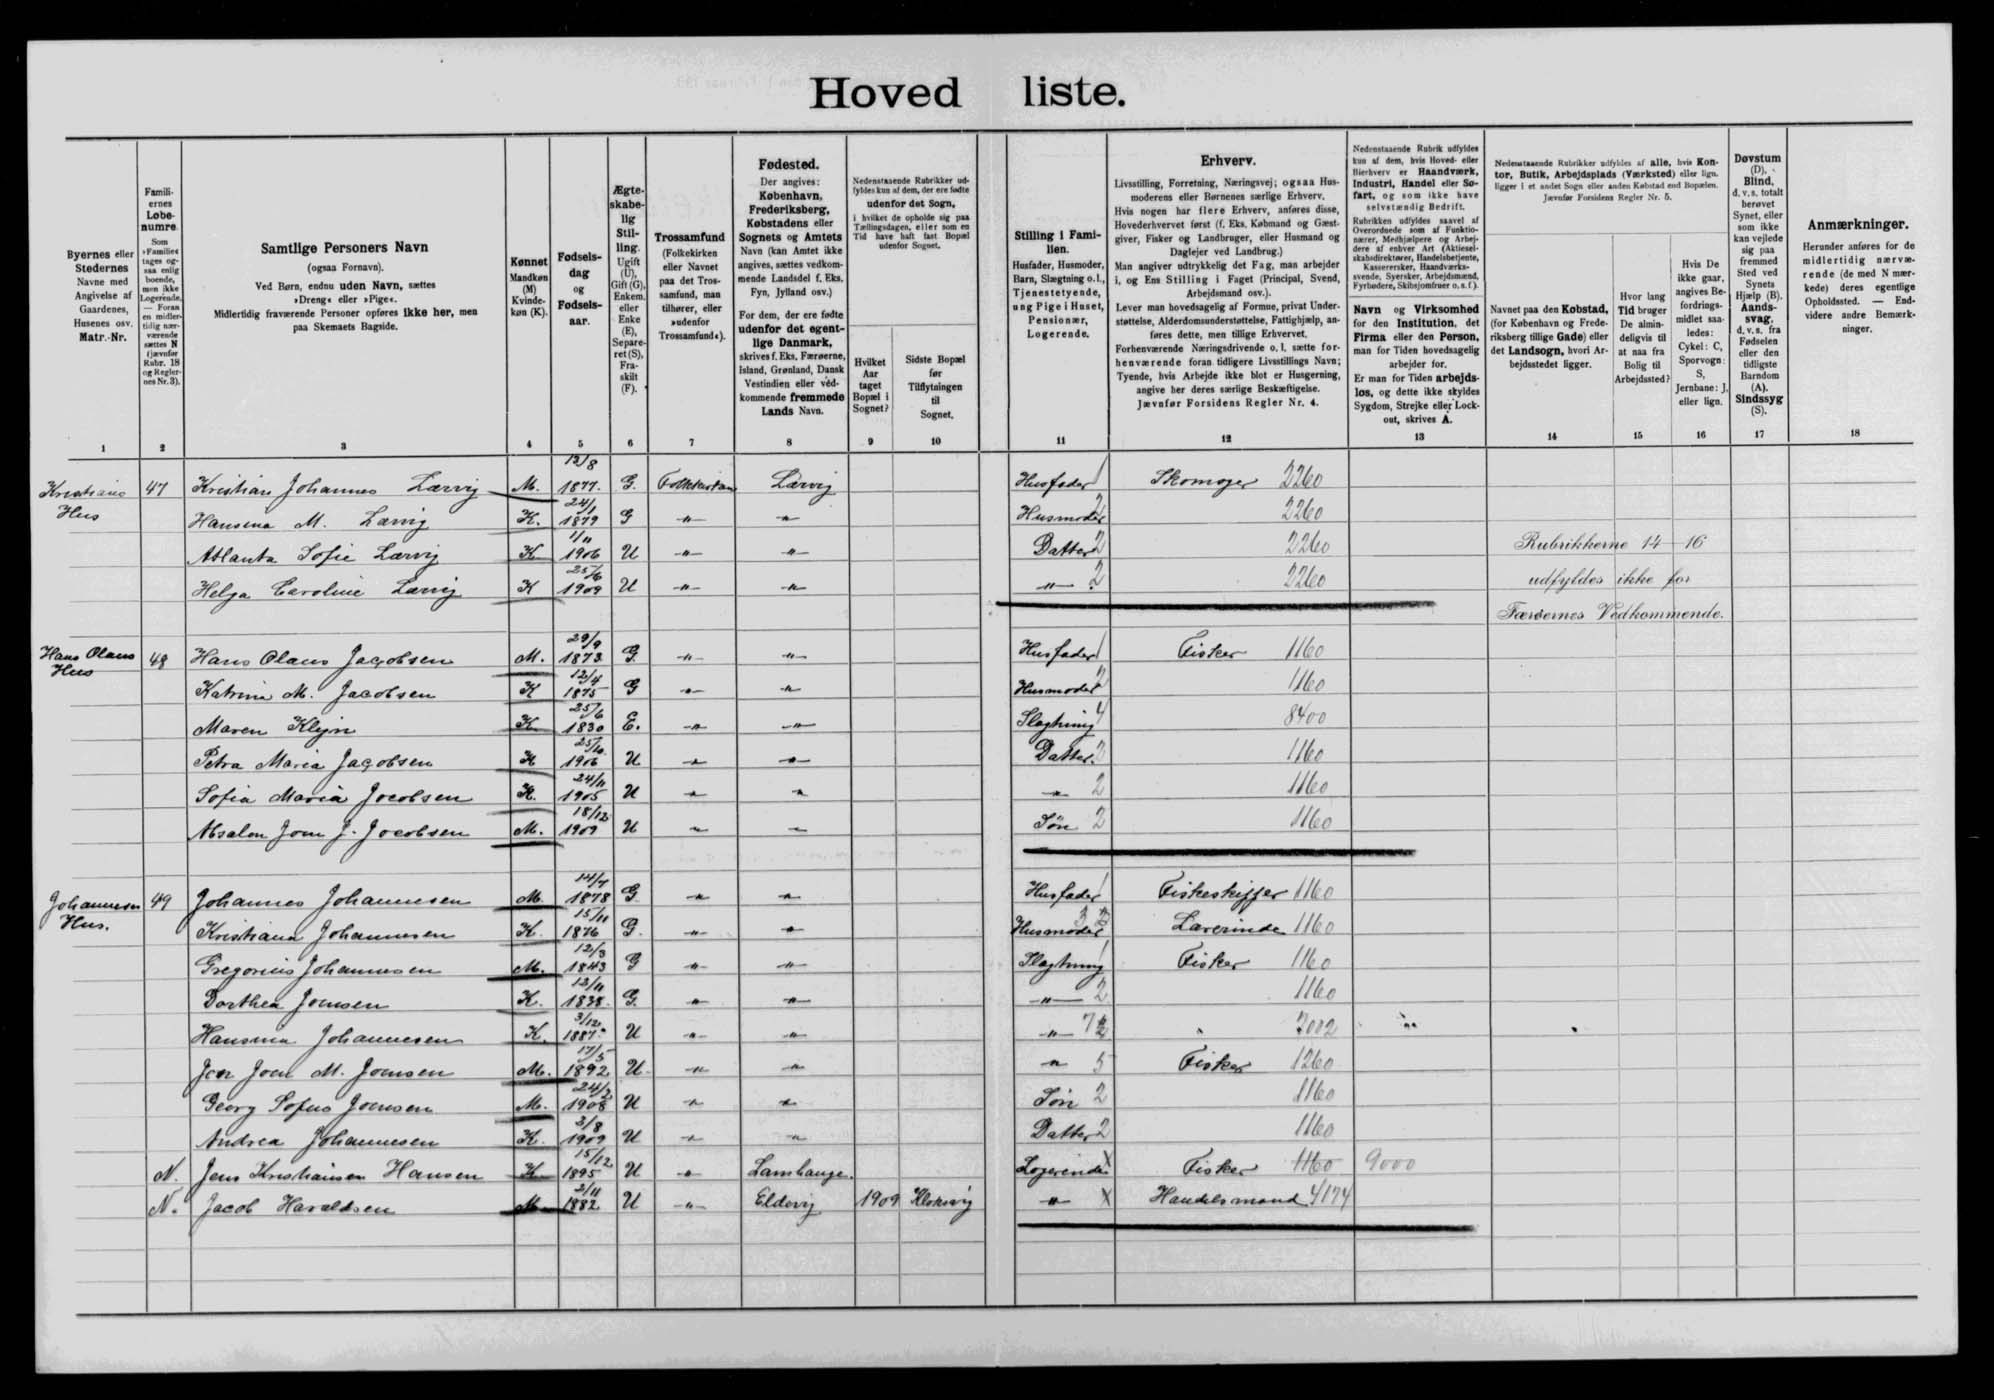 Hovedliste.
Byernes eller Stedernes Navne med Angivelse af Gaardenes, Husenes osv. Matr.-Nr.
Familiernes Løbenumre. Som »Familie« tages ogsaa enlig boende, men ikke Logerende. — Foran en midlertidig nærværende sættes N (jævnfør Rubr. 18 og Regler- nes Nr. 3).
Samtlige Personers Navn
(ogsaa Fornavn).
Ved Børn, endnu uden Navn, sættes
»Dreng« eller »Pige«.
Midlertidig fraværende Personer opføres ikke her, men
paa Skemaets Bagside.
Kønnet
Mandkøn (M) Kvindekøn (K).
Fødselsdag og Fødselsaar.
Ægteskabelig Stilling. Ugift (U), Gift (G), Enkem. eller Enke (E), Separeret (S), Fraskilt (F).
Trossamfund
(Folkekirken eller Navnet paa det Trossamfund, man tilhører, eller »udenfor Trossamfund«).
Fødested.
Der angives: København, Frederiksberg, Købstadens eller Sognets og Amtets Navn (kan Amtet ikke angives, sættes vedkommende Landsdel f. Eks. Fyn, Jylland osv.)
For dem, der ere fødte udenfor det egentlige Danmark, skrives f. Eks. Færøerne, Island, Grønland, Dansk Vestindien eller vedkommende fremmede Lands Navn.
Nedenstaaende Rubrikker udfyldes kun af dem, der ere fødte udenfor det Sogn, i hvilket de opholde sig paa Tællingsdagen, eller som en Tid have haft fast Bopæl udenfor Sognet.
Hvilket Aar taget Bopæl i Sognet?
Sidste Bopæl før Tilflytningen til Sognet.
Stilling i Familien.
Husfader, Husmoder, Barn, Slægtning o.l., Tjenestetyende, ung Pige i Huset, Pensionær, Logerende.
Erhverv.
Livsstilling, Forretning, Næringsvej; ogsaa Husmoderens eller Børnenes særlige Erhverv.
Hvis nogen har flere Erhverv, anføres disse, Hovederhvervet først (f. Eks. Købmand og Gæstgiver, Fisker og Landbruger, eller Husmand og Daglejer ved Landbrug.)
Man angiver udtrykkelig det Fag, man arbejder i, og Ens Stilling i Faget (Principal, Svend, Arbejdsmand osv.).
Lever man hovedsagelig af Formue, privat Understøttelse, Alderdomsunderstøttelse, Fattighjælp, anføres dette, men tillige Erhvervet.
Forhenværende Næringsdrivende o. l. sætte forhenværende foran tidligere Livsstillings Navn; Tyende, hvis Arbejde ikke blot er Husgerning, angive her deres særlige Beskæftigelse.
Jævnfør Forsidens Regler Nr. 4.
Nedenstaaende Rubrik udfyldes kun af dem, hvis Hoved- eller Bierhverv er Haandværk, Industri, Handel eller Søfart, og som ikke have selvstændig Bedrift.
Rubrikken udfyldes saavel af Overordnede som af Funktionærer, Medhjælpere og Arbejdere af enhver Art (Aktieselskabsdirektører, Handelsbetjente, Kasserersker, Haandværkssvende, Syersker, Arbejdsmænd, Fyrbødere, Skibsjomfruer o. s. f.).
Navn og Virksomhed for den Institution, det Firma eller den Person, man for Tiden hovedsagelig arbejder for.
Er man for Tiden arbejdsløs, og dette ikke skyldes Sygdom, Strejke eller Lockout, skrives A.
Nedenstaaende Rubrikker udfyldes af alle, hvis Kontor, Butik, Arbejdsplads (Værksted) eller lign. ligger i et andet Sogn eller anden Købstad end Bopælen. Jævnfør Forsidens Regler Nr. 5.
Navnet paa den Købstad, (for København og Frederiksberg tillige Gade) eller det Landsogn, hvori Arbejdsstedet ligger.
Hvor lang Tid bruger De almindeligvis til at naa fra Bolig til Arbejdssted?
Hvis De ikke gaar, angives Befordringsmidlet saaledes: Cykel: C, Sporvogn: S, Jernbane: J, eller lign.
Døvstum (D), Blind, d. v. s. totalt berøvet Synet, eller som ikke kan vejlede sig paa fremmed Sted ved Synets Hjælp (B). Aandssvag. d. v. s. fra Fødselen eller den tidligste Barndom (A). Sindssyg (S).
Anmærkninger.
Herunder anføres for de midlertidig nærværende (de med N mærkede) deres egentlige Opholdssted. — Endvidere andre Bemærkninger.
1 2 3 4 5 6 7 8 9 10 11 12 13 14 15 16 17 18
Kristians Hus 47 Kristian Johannes Lærvig M. 12/8 1877. G. Folkekirken Lærvig Husfader 1 Skomager 2260
Hansina M. Lærvig K. 24/1 1879 G " " Husmoder 2 2260
Atlanta Sofie Lærvig K 1/11 1906 U " " Datter 2 2260 Rubrikkerne 14-16
Helga Caroline Lærvig K 25/6 1909 U " " " 2 2260 udfyldes ikke for
Færøernes Vedkommende.
Hans Olaus Hus 48 Hans Olaus Jacobsen M. 29/9 1873. G. " " Husfader 1 Fisker 1160
Katrina M. Jacobsen K 12/4 1875 G " " Husmoder 2 1160
Maren Klejn K 25/6 1830 E. " " Slægtning 4 8400
Petra Maria Jacobsen K 25/10 1906 U " " Datter. 2 1160
Sofia Maria Jacobsen K. 24/11 1905 U " " " 2 1160
Absalon Joen J. Jacobsen M. 18/12 1909 U " " Søn 2 1160
Johannesen Hus. 49 Johannes Johannesen M. 14/7 1878 G. " " Husfader 1 Fiskeskipper 1160
Kristiana Johannesen K. 15/11 1876 G. " " Husmoder 3 Lærerinde 1160
Gregorius Johannesen M. 12/3 1843 G " " Slægtning 1 Fisker 1160
Dorthea Joensen K. 13/11 1838. G. " " " 2 1160
Hansina Johannesen K. 3/12 1887. U " " " 7 3002
Joen M. Joensen M. 17/5 1892 U. " " " 5 Fisker 1260
Georg Sofus Joensen M. 24/2 1908 U " " Søn 2 1160
Andrea Johannesen K. 3/8 1909 U " " Datter 2 1160
N. Jens Kristiansen Hansen K 15/12 1895 U " Lamhauge. Logerende X Fisker 1160 9000
N. Jacob Haraldsen M 2/11 1882 U " Eldevig 1909 Klaksvig " X Handelsmand 4174